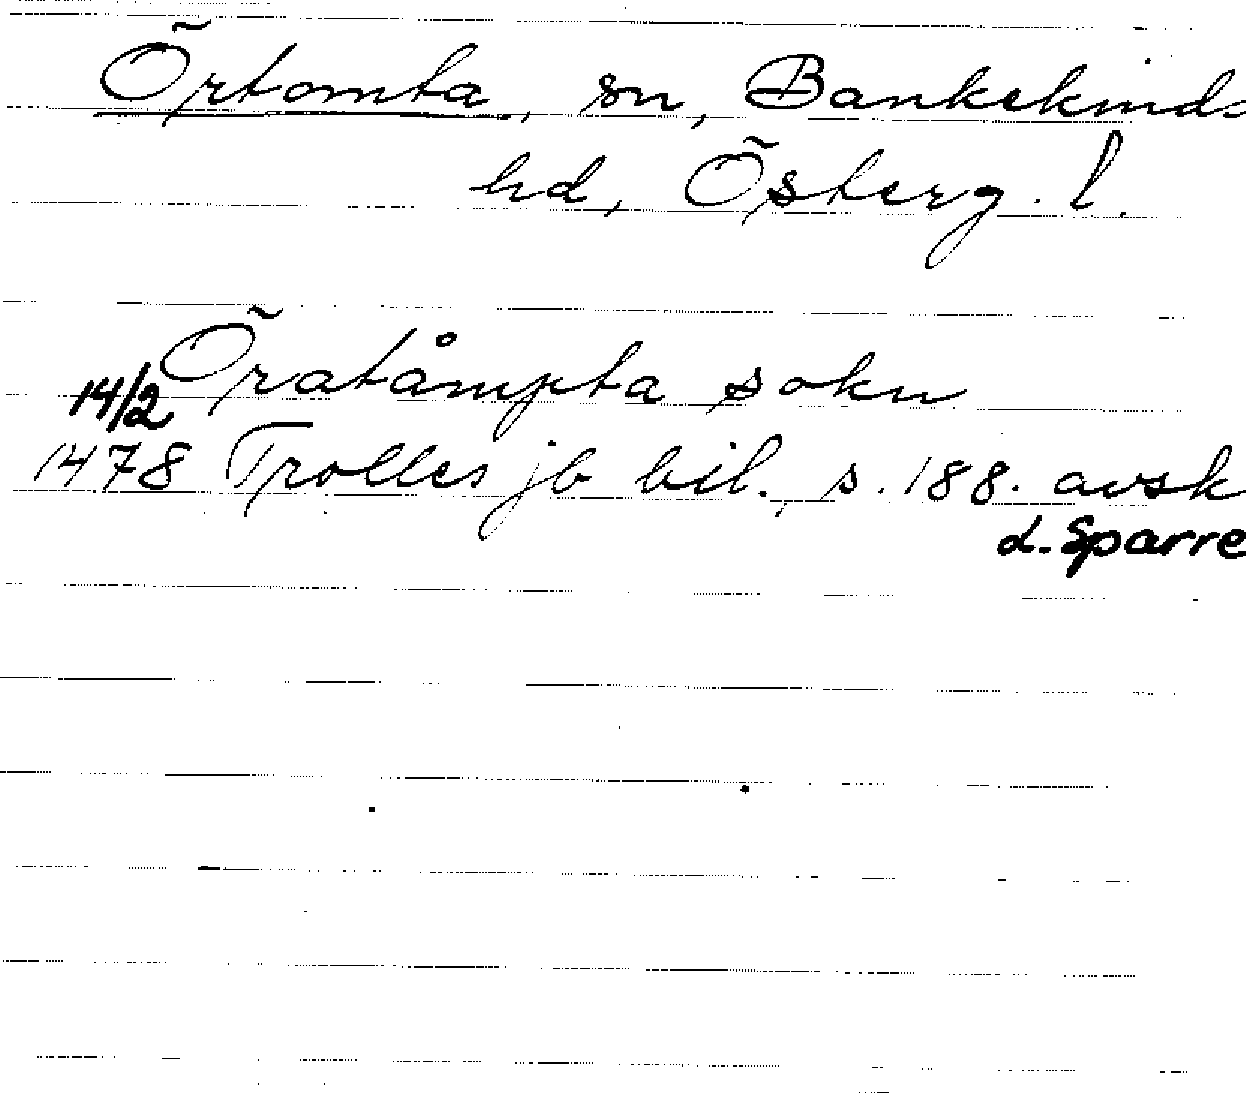 Örtomta, sn, Bankekinds
hd, Österg. l.
Öratåmpta sokn
14/2
1478 Trolles jb bil., s. 188. avsk
L. Sparre